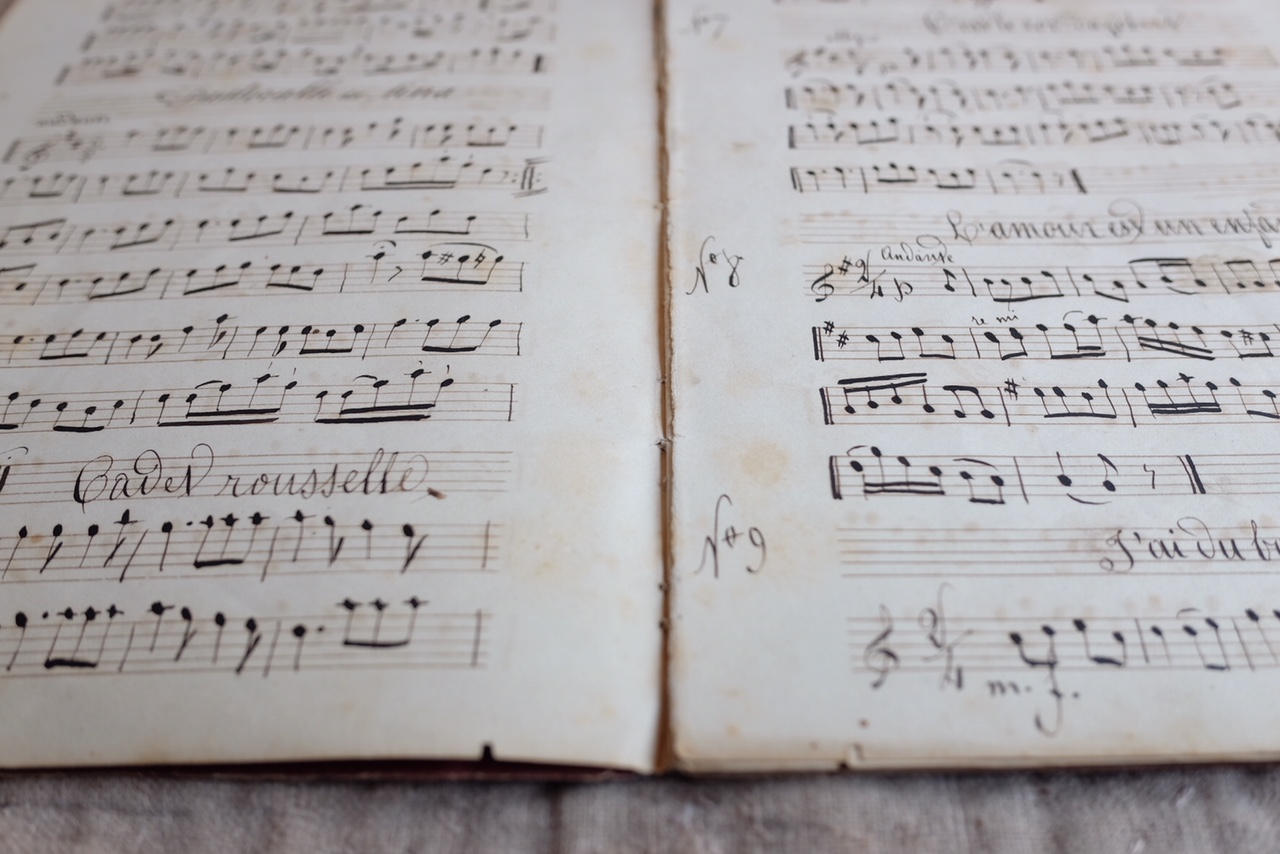 Cadet rousselle.
N° 7
L'amour est un enfa
N° 8
Andante
2/4 p
re mi
N° 9
J'ai du b
2/4
m. f.